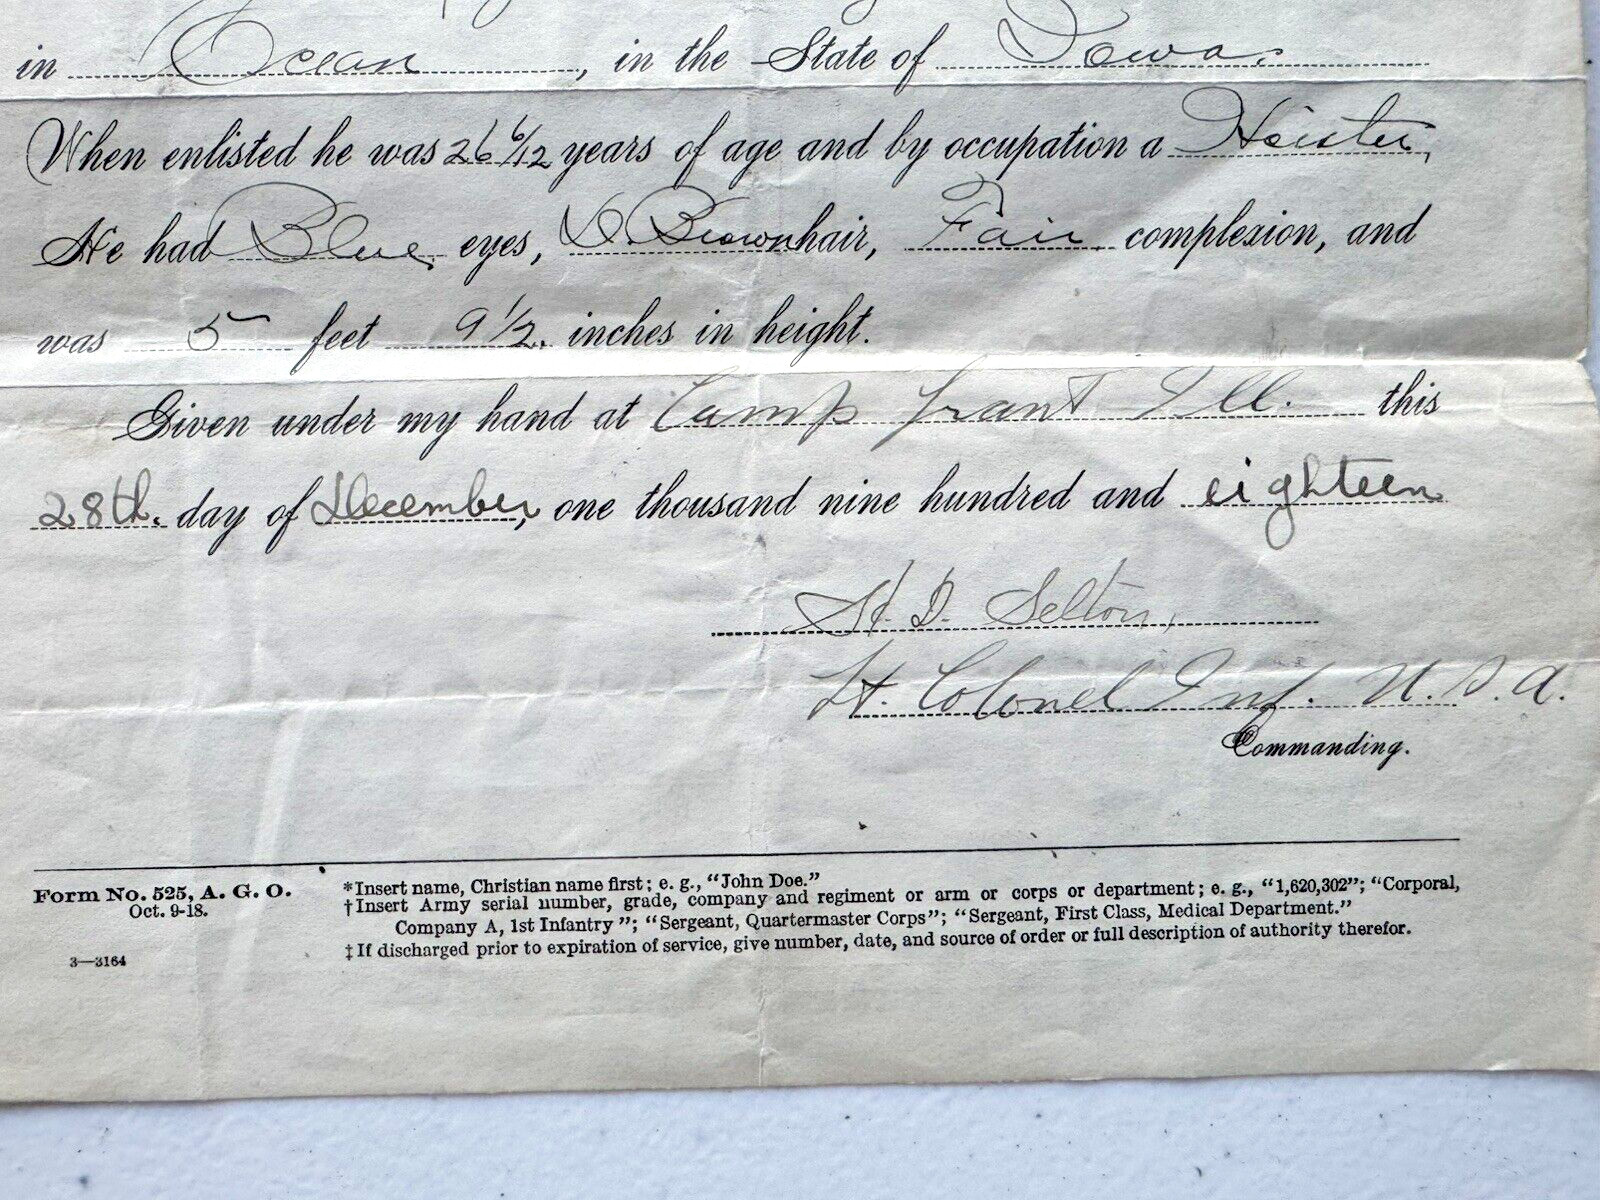 in Ocean, in the State of Iowa.
When enlisted he was 26 6/12 years of age and by occupation a Heister,
He had Blue eyes, D. Brown hair, Fair complexion, and
was 5 feet 9 1/2 inches in height.
Given under my hand at Camp Grant Ill. this
28th. day of December, one thousand nine hundred and eighteen
H. D. Selton,
Lt. Colonel Inf. U.S.A.
Commanding.
Form No. 525, A. G. O.
Oct. 9-18.
3—3164
*Insert name, Christian name first; e. g., "John Doe."
†Insert Army serial number, grade, company and regiment or arm or corps or department; e. g., "1,620,302"; "Corporal,
Company A, 1st Infantry"; "Sergeant, Quartermaster Corps"; "Sergeant, First Class, Medical Department."
‡If discharged prior to expiration of service, give number, date, and source of order or full description of authority therefor.